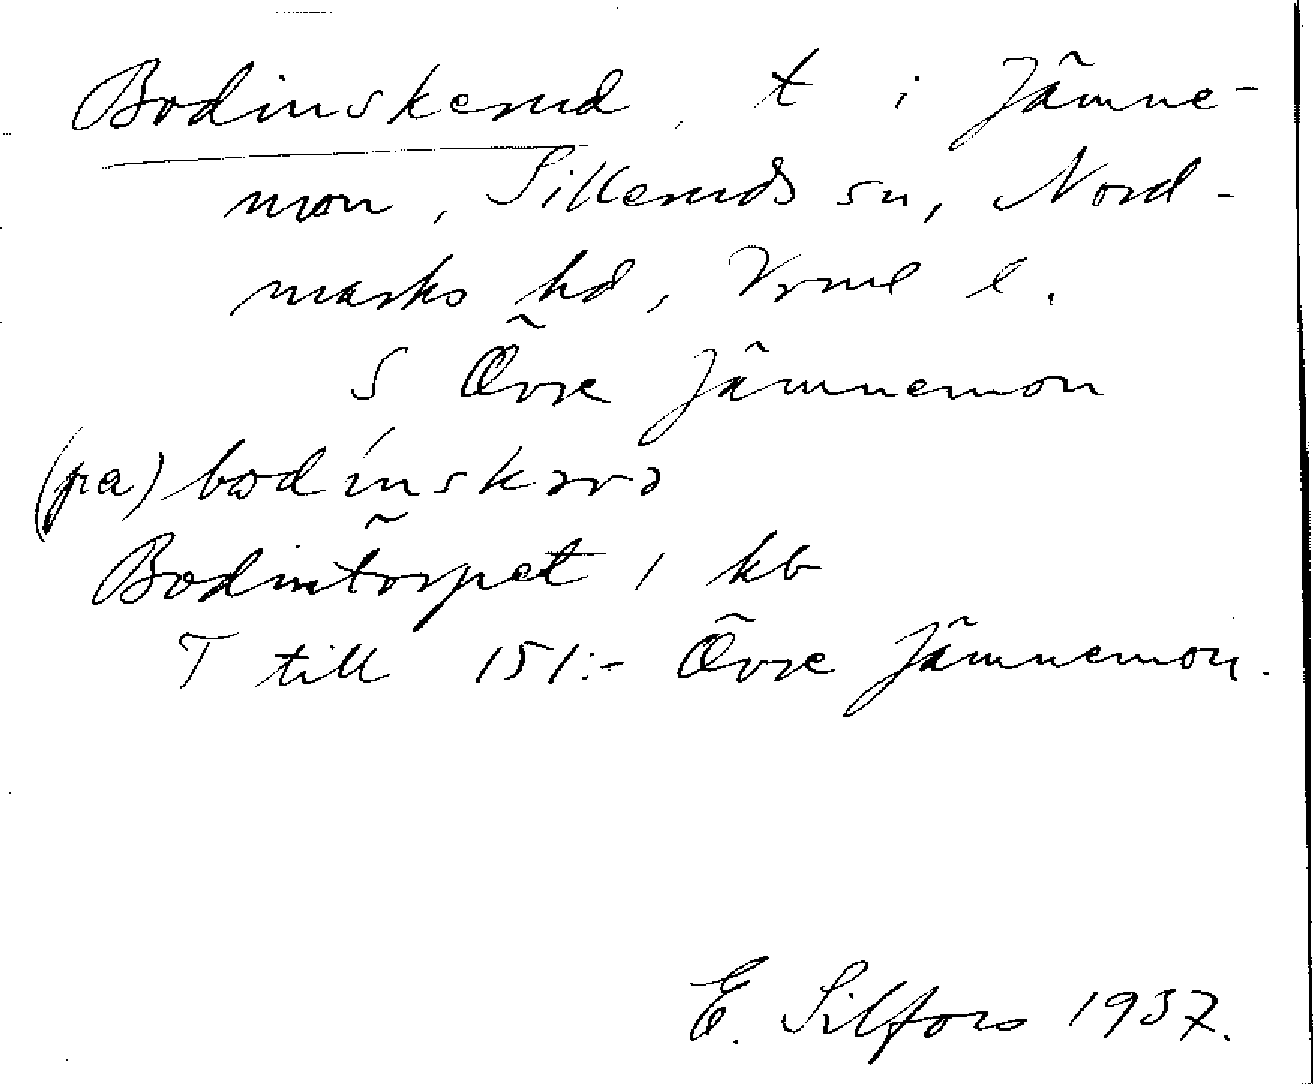 Bodinskerud, t i Jämne-
mon, Silleruds sn, Nord-
marks hd, Vrml l.
S Övre Jämnemon
(pa) bod ínskərə
Bodintörpet, kb
T till 151:- Övre Jämnemon.
E. Silfors 1937.